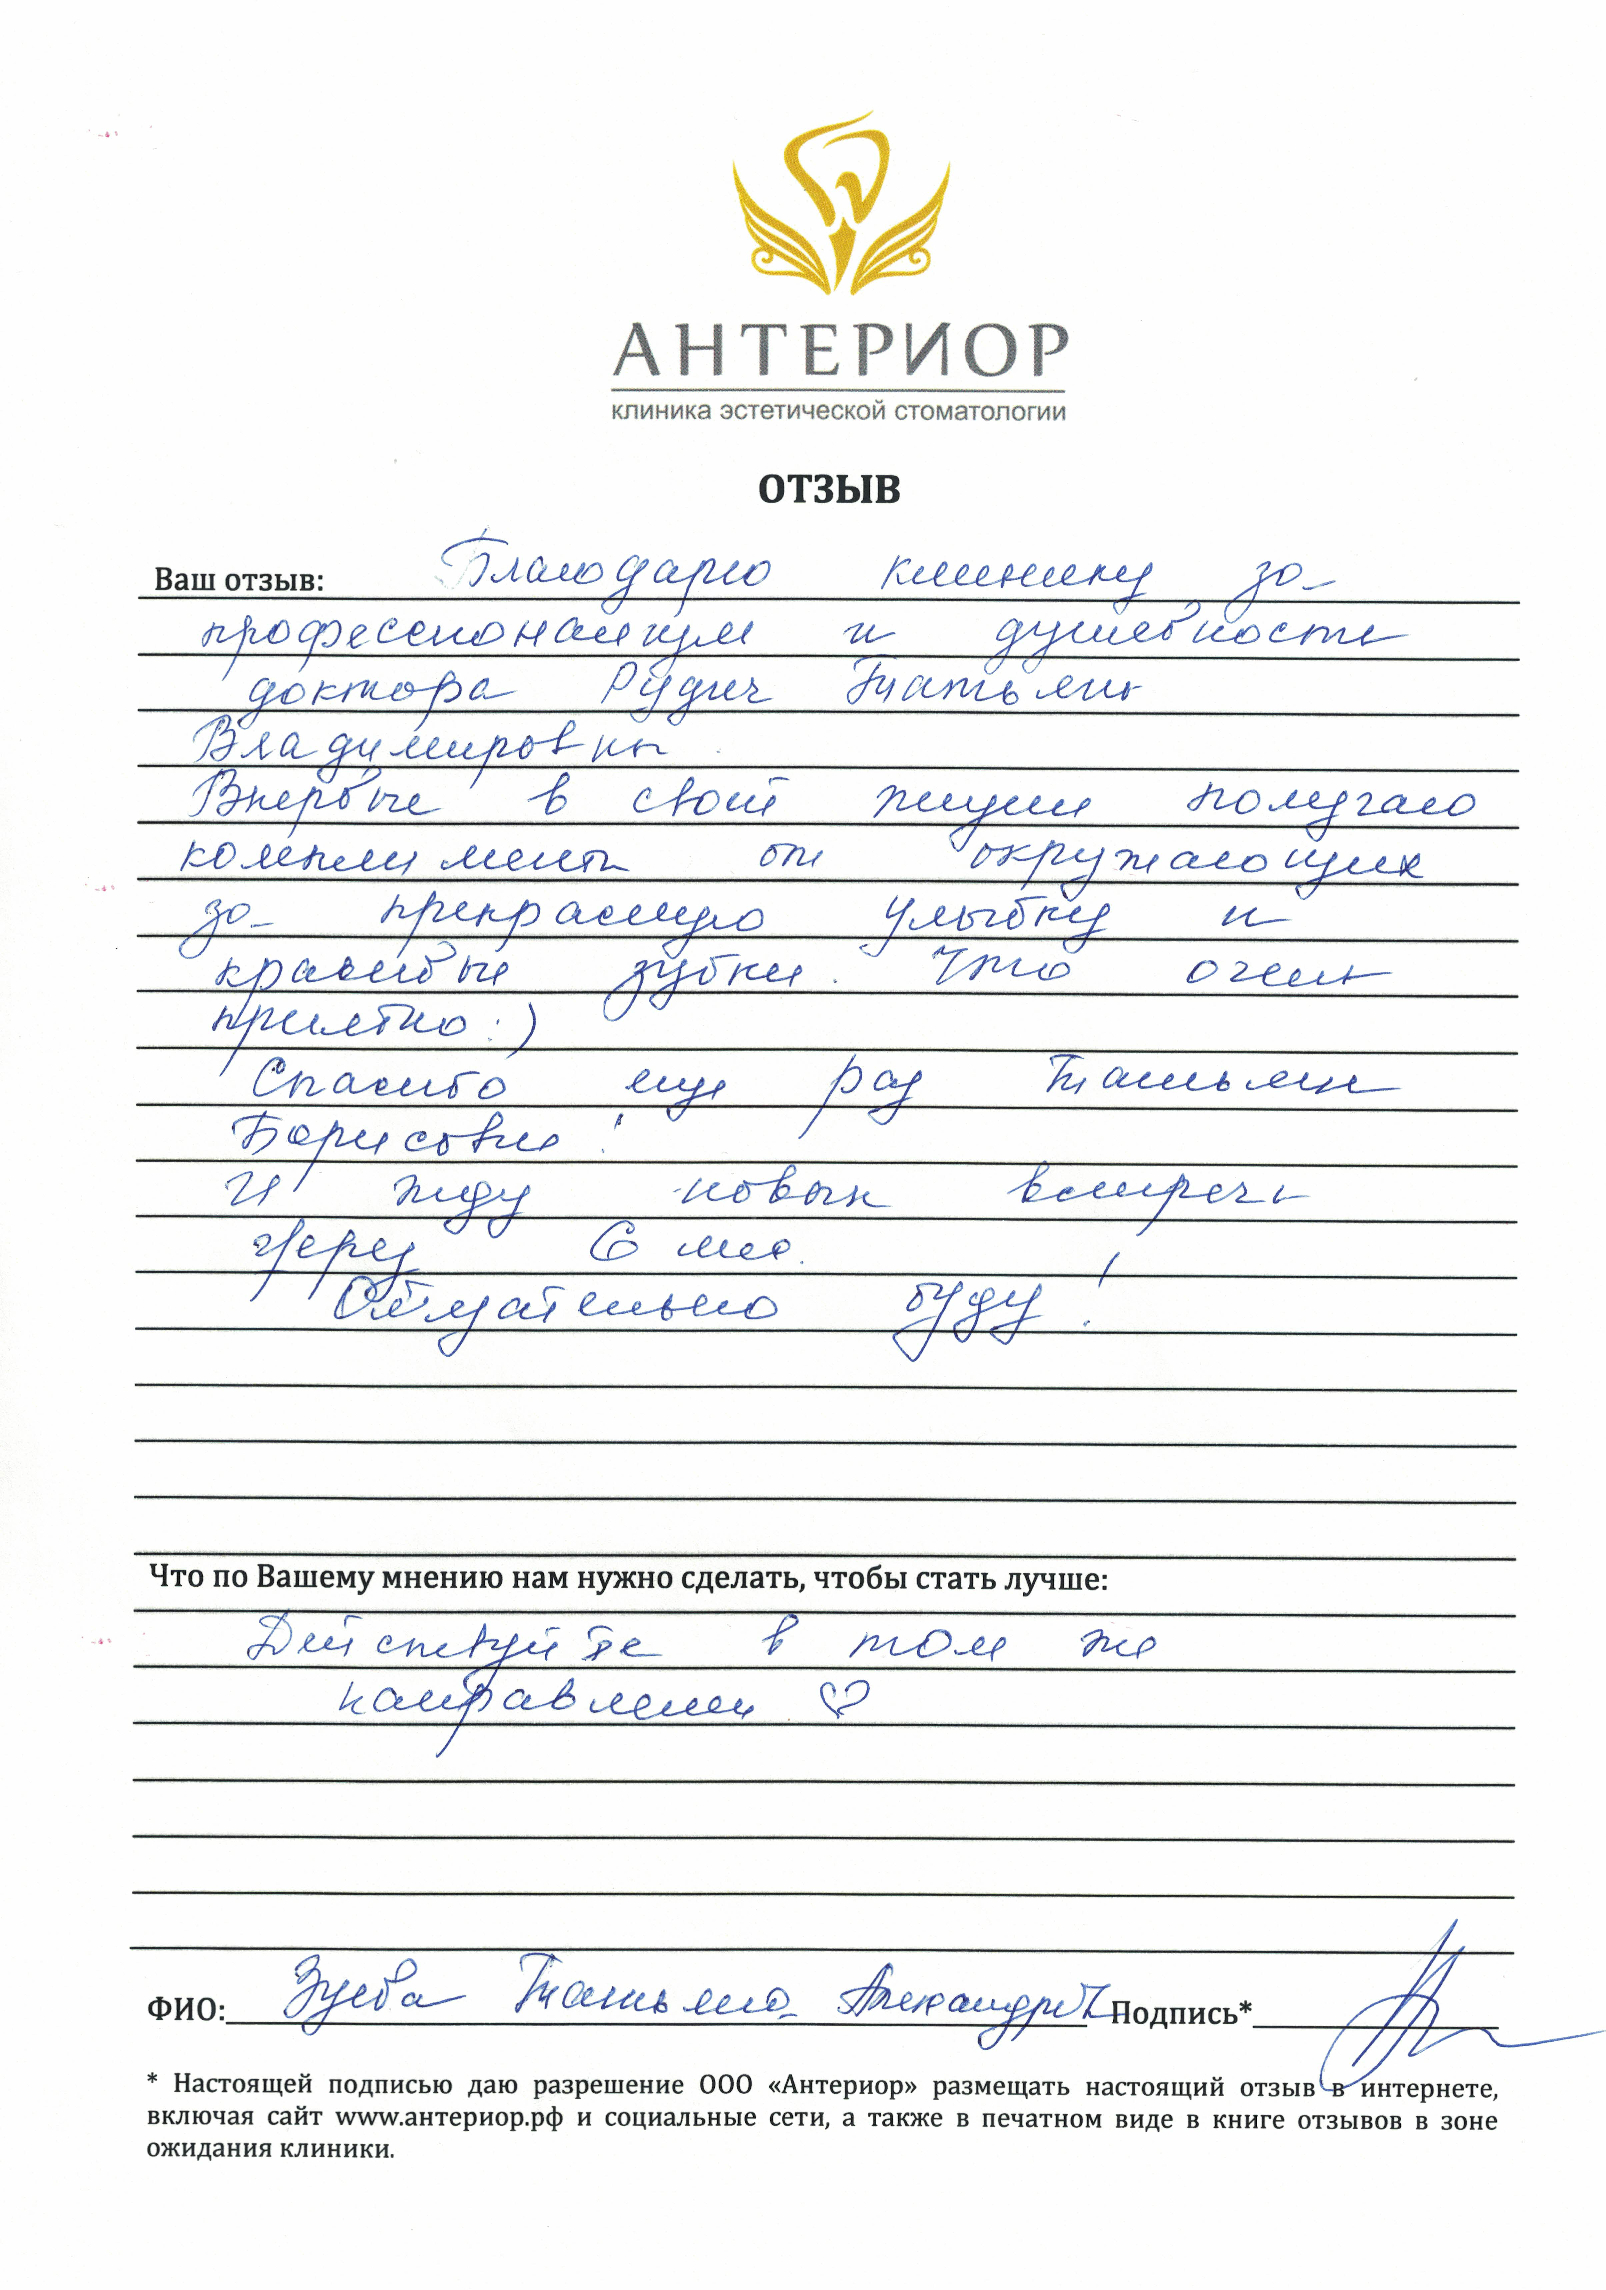 АНТЕРИОР
клиника эстетической стоматологии
ОТЗЫВ
Ваш отзыв: Благодарю клинику за
профессионализм и душевность
доктора Рудич Татьяны
Владимировны
Впервые в своей жизни получаю
комплименты от окружающих
за прекрасную улыбку и
красивые зубки. Что очень
приятно :)
Спасибо еще раз Татьяне
Борисовне!
И жду новых встреч
через 6 мес.
Обязательно буду!
Что по Вашему мнению нам нужно сделать, чтобы стать лучше:
Действуйте в том же
направлении ♡
ФИО: Зуева Татьяна Подпись*
* Настоящей подписью даю разрешение ООО «Антериор» размещать настоящий отзыв в интернете,
включая сайт www.антериор.рф и социальные сети, а также в печатном виде в книге отзывов в зоне
ожидания клиники.